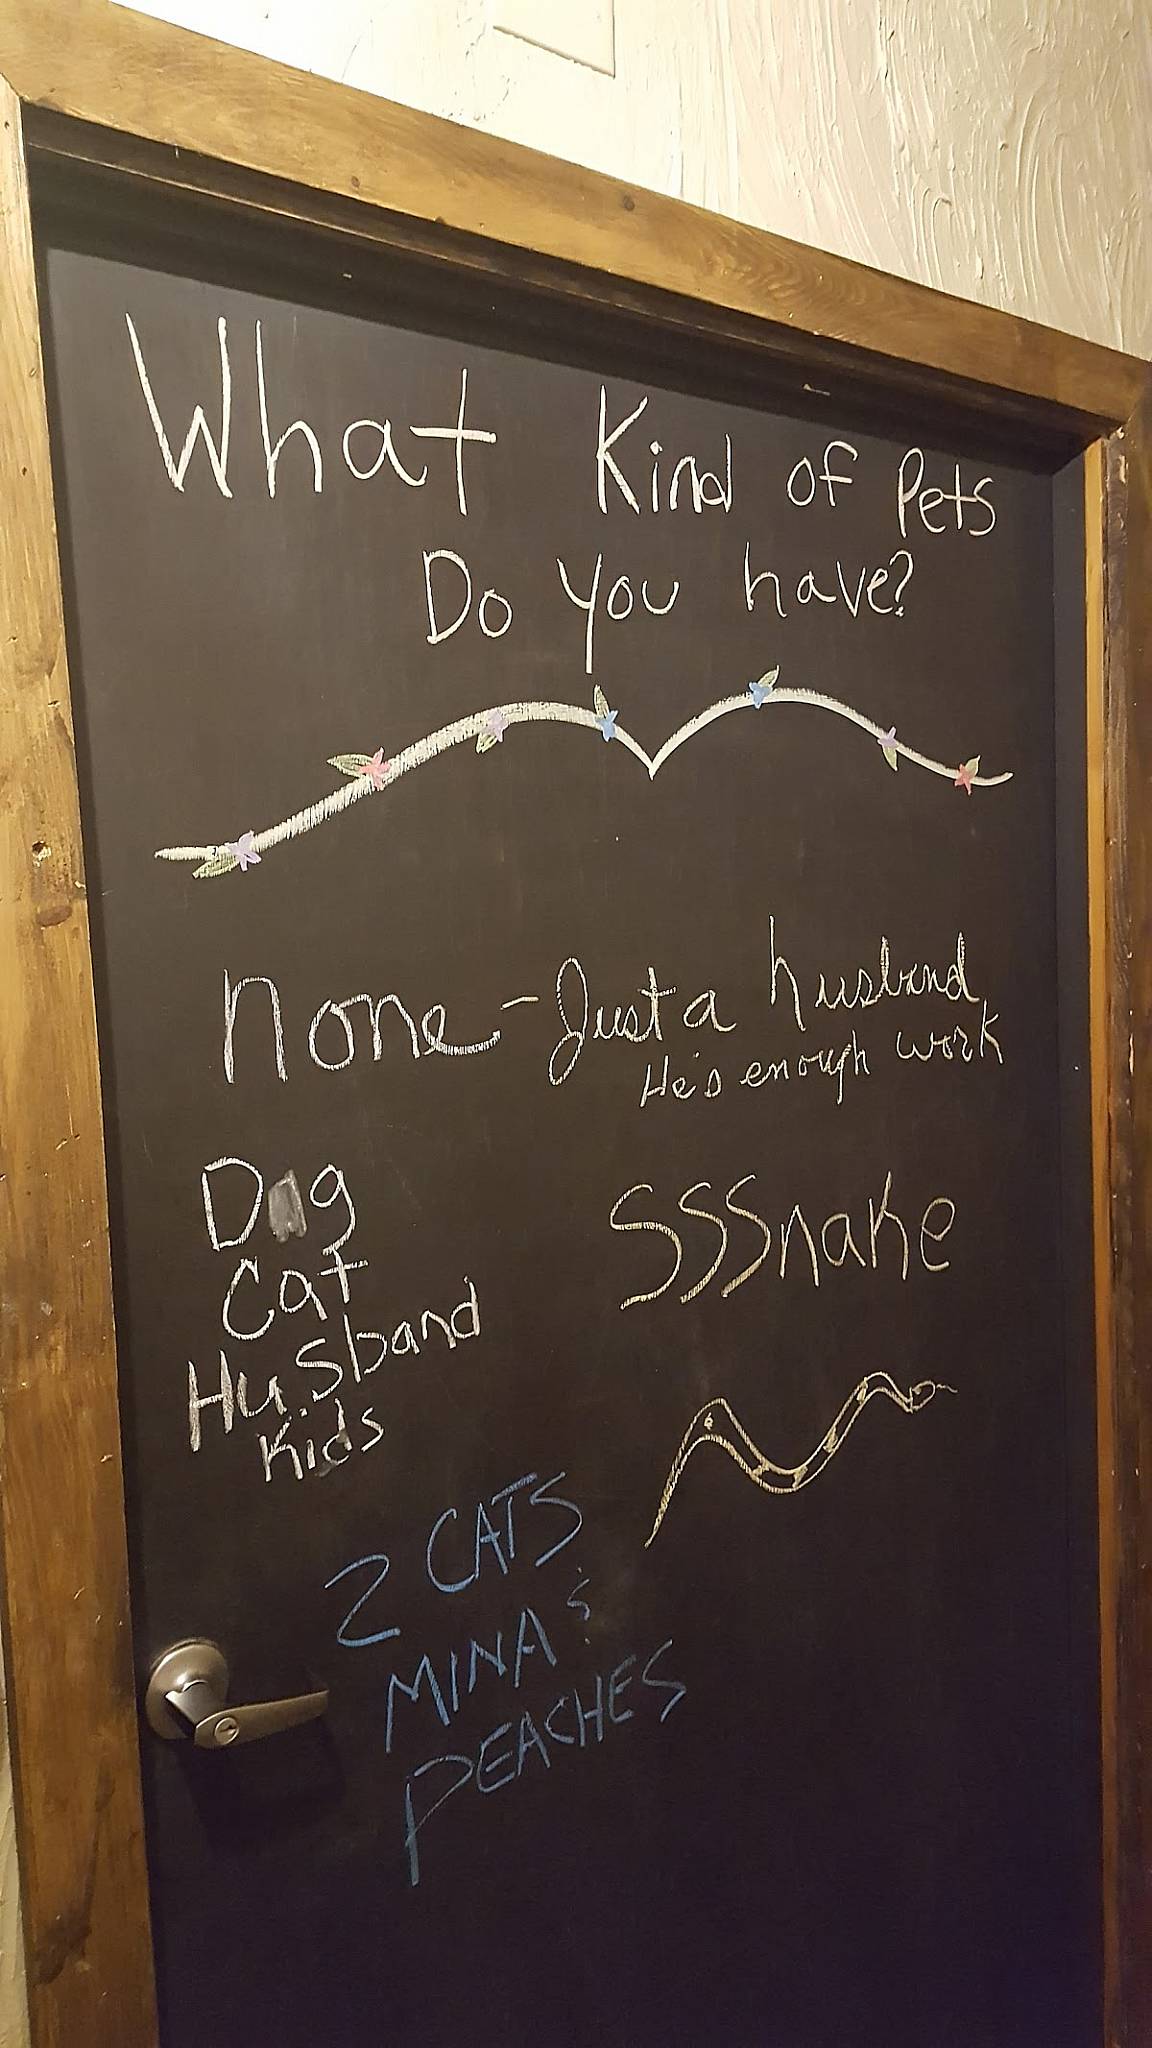 What Kind of Pets
Do you have?
None - Just a husband
He's enough work
Dog
Cat
Husband
Kids
SSSnake
2 CATS
MINA &
PEACHES